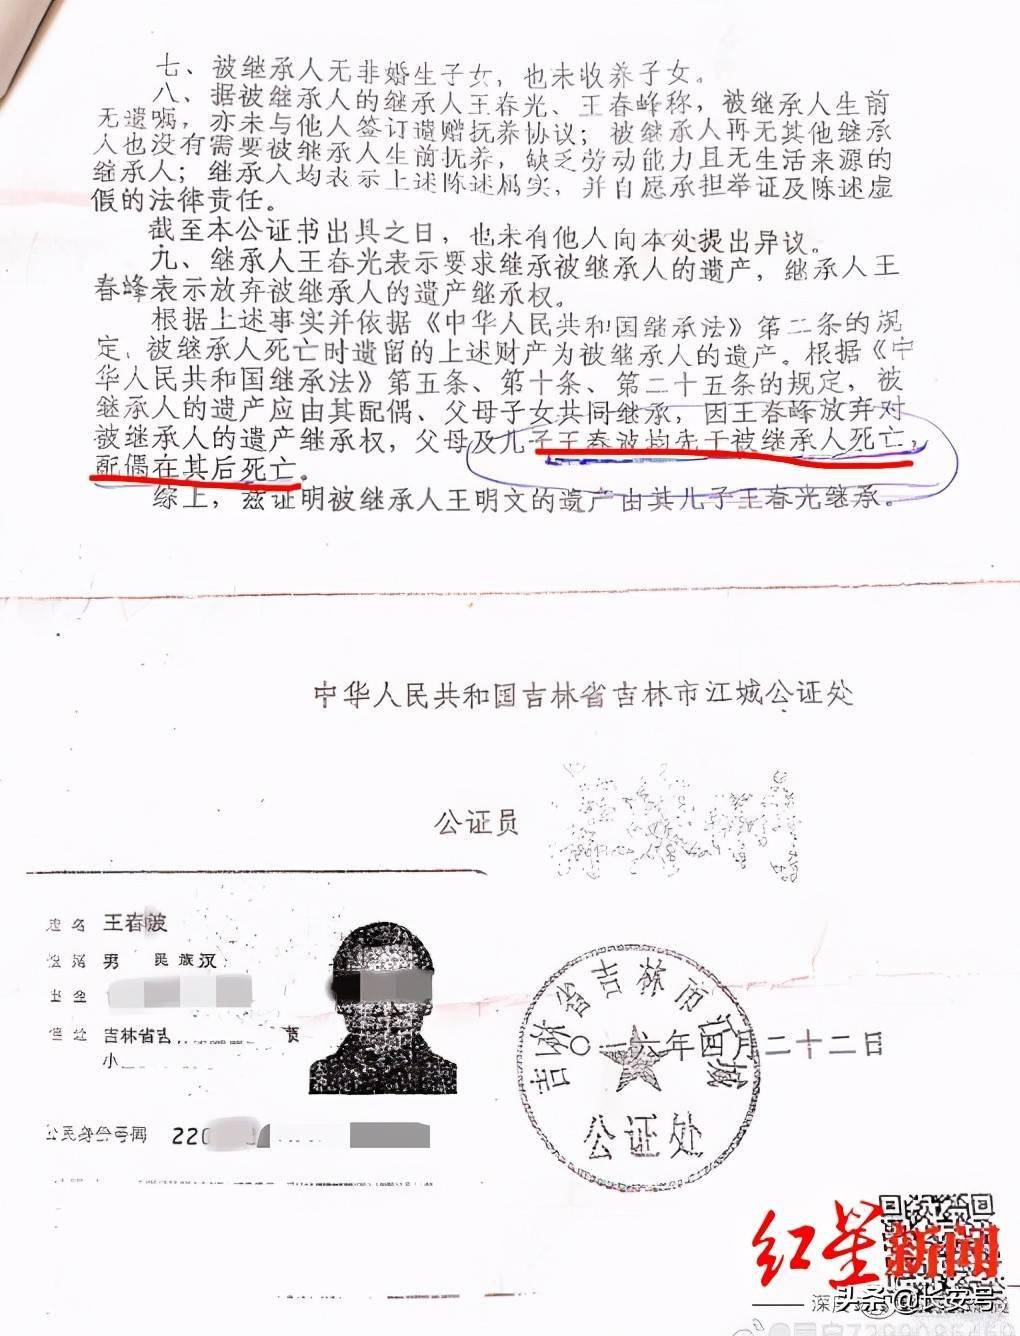 七、被继承人无非婚生子女，也未收养子女。
八、据被继承人的继承人王春光、王春峰称，被继承人生前
无遗嘱，亦未与他人签订遗赠抚养协议；被继承人再无其他继承
人也没有需要被继承人生前抚养，缺乏劳动能力且无生活来源的
继承人；继承人均表示上述陈述属实，并自愿承担举证及陈述虚
假的法律责任。
截至本公证书出具之日，也未有他人向本处提出异议。
九、继承人王春光表示要求继承被继承人的遗产，继承人王
春峰表示放弃被继承人的遗产继承权。
根据上述事实并依据《中华人民共和国继承法》第二条的规
定，被继承人死亡时遗留的上述财产为被继承人的遗产。根据《中
华人民共和国继承法》第五条、第十条、第二十五条的规定，被
继承人的遗产应由其配偶、父母子女共同继承，因王春峰放弃对
被继承人的遗产继承权，父母及儿子王春波均先于被继承人死亡，
配偶在其后死亡。
综上，兹证明被继承人王明文的遗产由其儿子王春光继承。
中华人民共和国吉林省吉林市江城公证处
公证员
姓名 王春波
男 民族汉
吉林省吉
小
公民身份号码 220
吉林省吉林市江城
公证处
〇一六年四月二十二日
红星新闻
头条@长安号